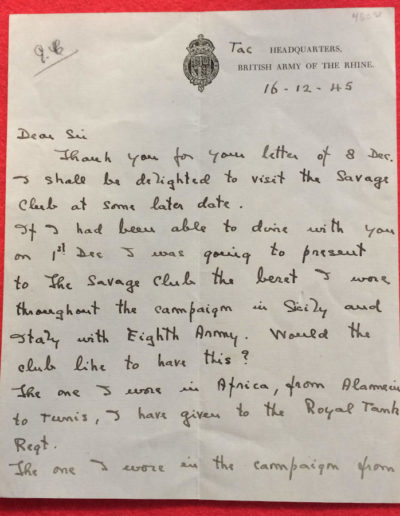 Tac HEADQUARTERS,
BRITISH ARMY OF THE RHINE.
16-12-45
Dear Sir
Thank you for your letter of 8 Dec.
I shall be delighted to visit the Savage
Club at some later date.
If I had been able to dine with you
on 1st Dec I was going to present
to The Savage Club the beret I wore
throughout the campaign in Sicily and
Italy with Eighth Army. Would the
club like to have this?
The one I wore in Africa, from Alamein
to Tunis, I have given to the Royal Tank
Regt.
The one I wore in the campaign from